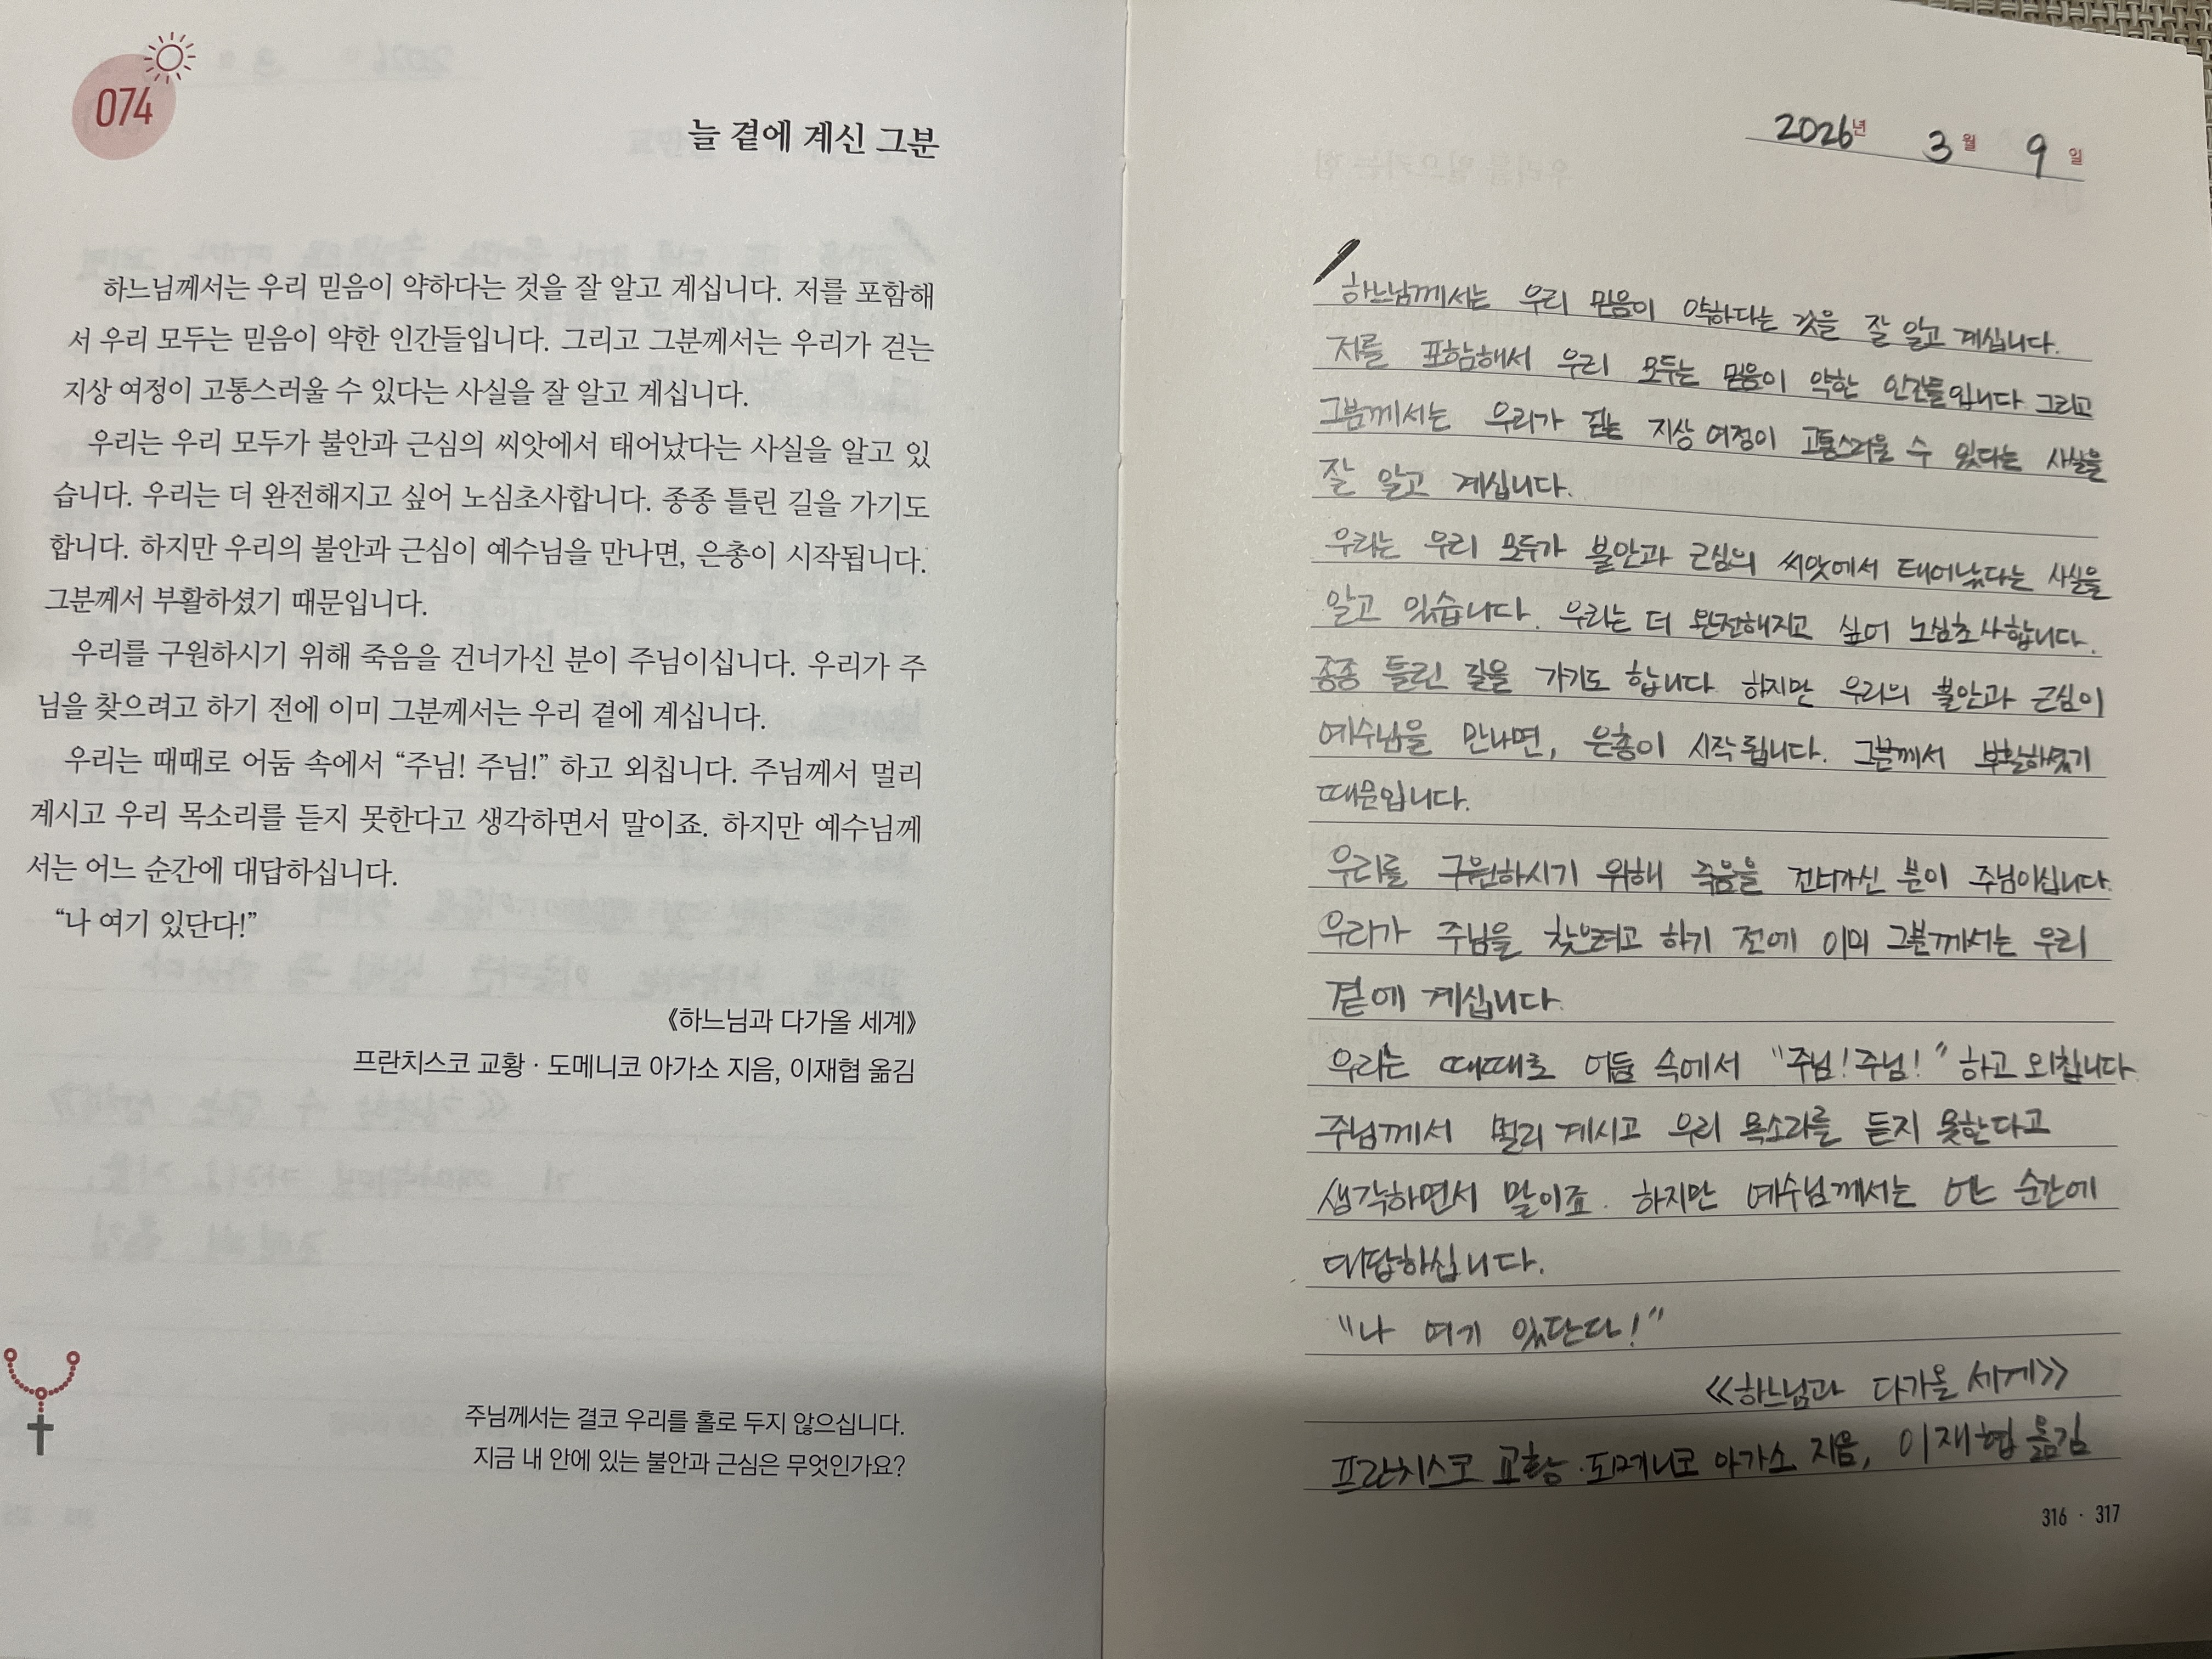 074
늘 곁에 계신 그분
하느님께서는 우리 믿음이 약하다는 것을 잘 알고 계십니다. 저를 포함해
서 우리 모두는 믿음이 약한 인간들입니다. 그리고 그분께서는 우리가 걷는
지상 여정이 고통스러울 수 있다는 사실을 잘 알고 계십니다.
우리는 우리 모두가 불안과 근심의 씨앗에서 태어났다는 사실을 알고 있
습니다. 우리는 더 완전해지고 싶어 노심초사합니다. 종종 틀린 길을 가기도
합니다. 하지만 우리의 불안과 근심이 예수님을 만나면, 은총이 시작됩니다.
그분께서 부활하셨기 때문입니다.
우리를 구원하시기 위해 죽음을 건너가신 분이 주님이십니다. 우리가 주
님을 찾으려고 하기 전에 이미 그분께서는 우리 곁에 계십니다.
우리는 때때로 어둠 속에서 “주님! 주님!” 하고 외칩니다. 주님께서 멀리
계시고 우리 목소리를 듣지 못한다고 생각하면서 말이죠. 하지만 예수님께
서는 어느 순간에 대답하십니다.
“나 여기 있단다!”
《하느님과 다가올 세계》
프란치스코 교황 · 도메니코 아가소 지음, 이재협 옮김
주님께서는 결코 우리를 홀로 두지 않으십니다.
지금 내 안에 있는 불안과 근심은 무엇인가요?
2026년 3월 9일
하느님께서는 우리 믿음이 약하다는 것을 잘 알고 계십니다.
저를 포함해서 우리 모두는 믿음이 약한 인간들입니다 그리고
그분께서는 우리가 걷는 지상 여정이 고통스러울 수 있다는 사실을
잘 알고 계십니다.
우리는 우리 모두가 불안과 근심의 씨앗에서 태어났다는 사실을
알고 있습니다. 우리는 더 완전해지고 싶어 노심초사합니다.
종종 틀린 길을 가기도 합니다 하지만 우리의 불안과 근심이
예수님을 만나면, 은총이 시작됩니다. 그분께서 부활하셨기
때문입니다.
우리를 구원하시기 위해 죽음을 건너가신 분이 주님이십니다.
우리가 주님을 찾으려고 하기 전에 이미 그분께서는 우리
곁에 계십니다.
우리는 때때로 어둠 속에서 “주님! 주님!” 하고 외칩니다.
주님께서 멀리 계시고 우리 목소리를 듣지 못한다고
생각하면서 말이죠. 하지만 예수님께서는 어느 순간에
대답하십니다.
“나 여기 있단다!”
《하느님과 다가올 세계》
프란치스코 교황 · 도메니코 아가소 지음, 이재협 옮김
316 · 317